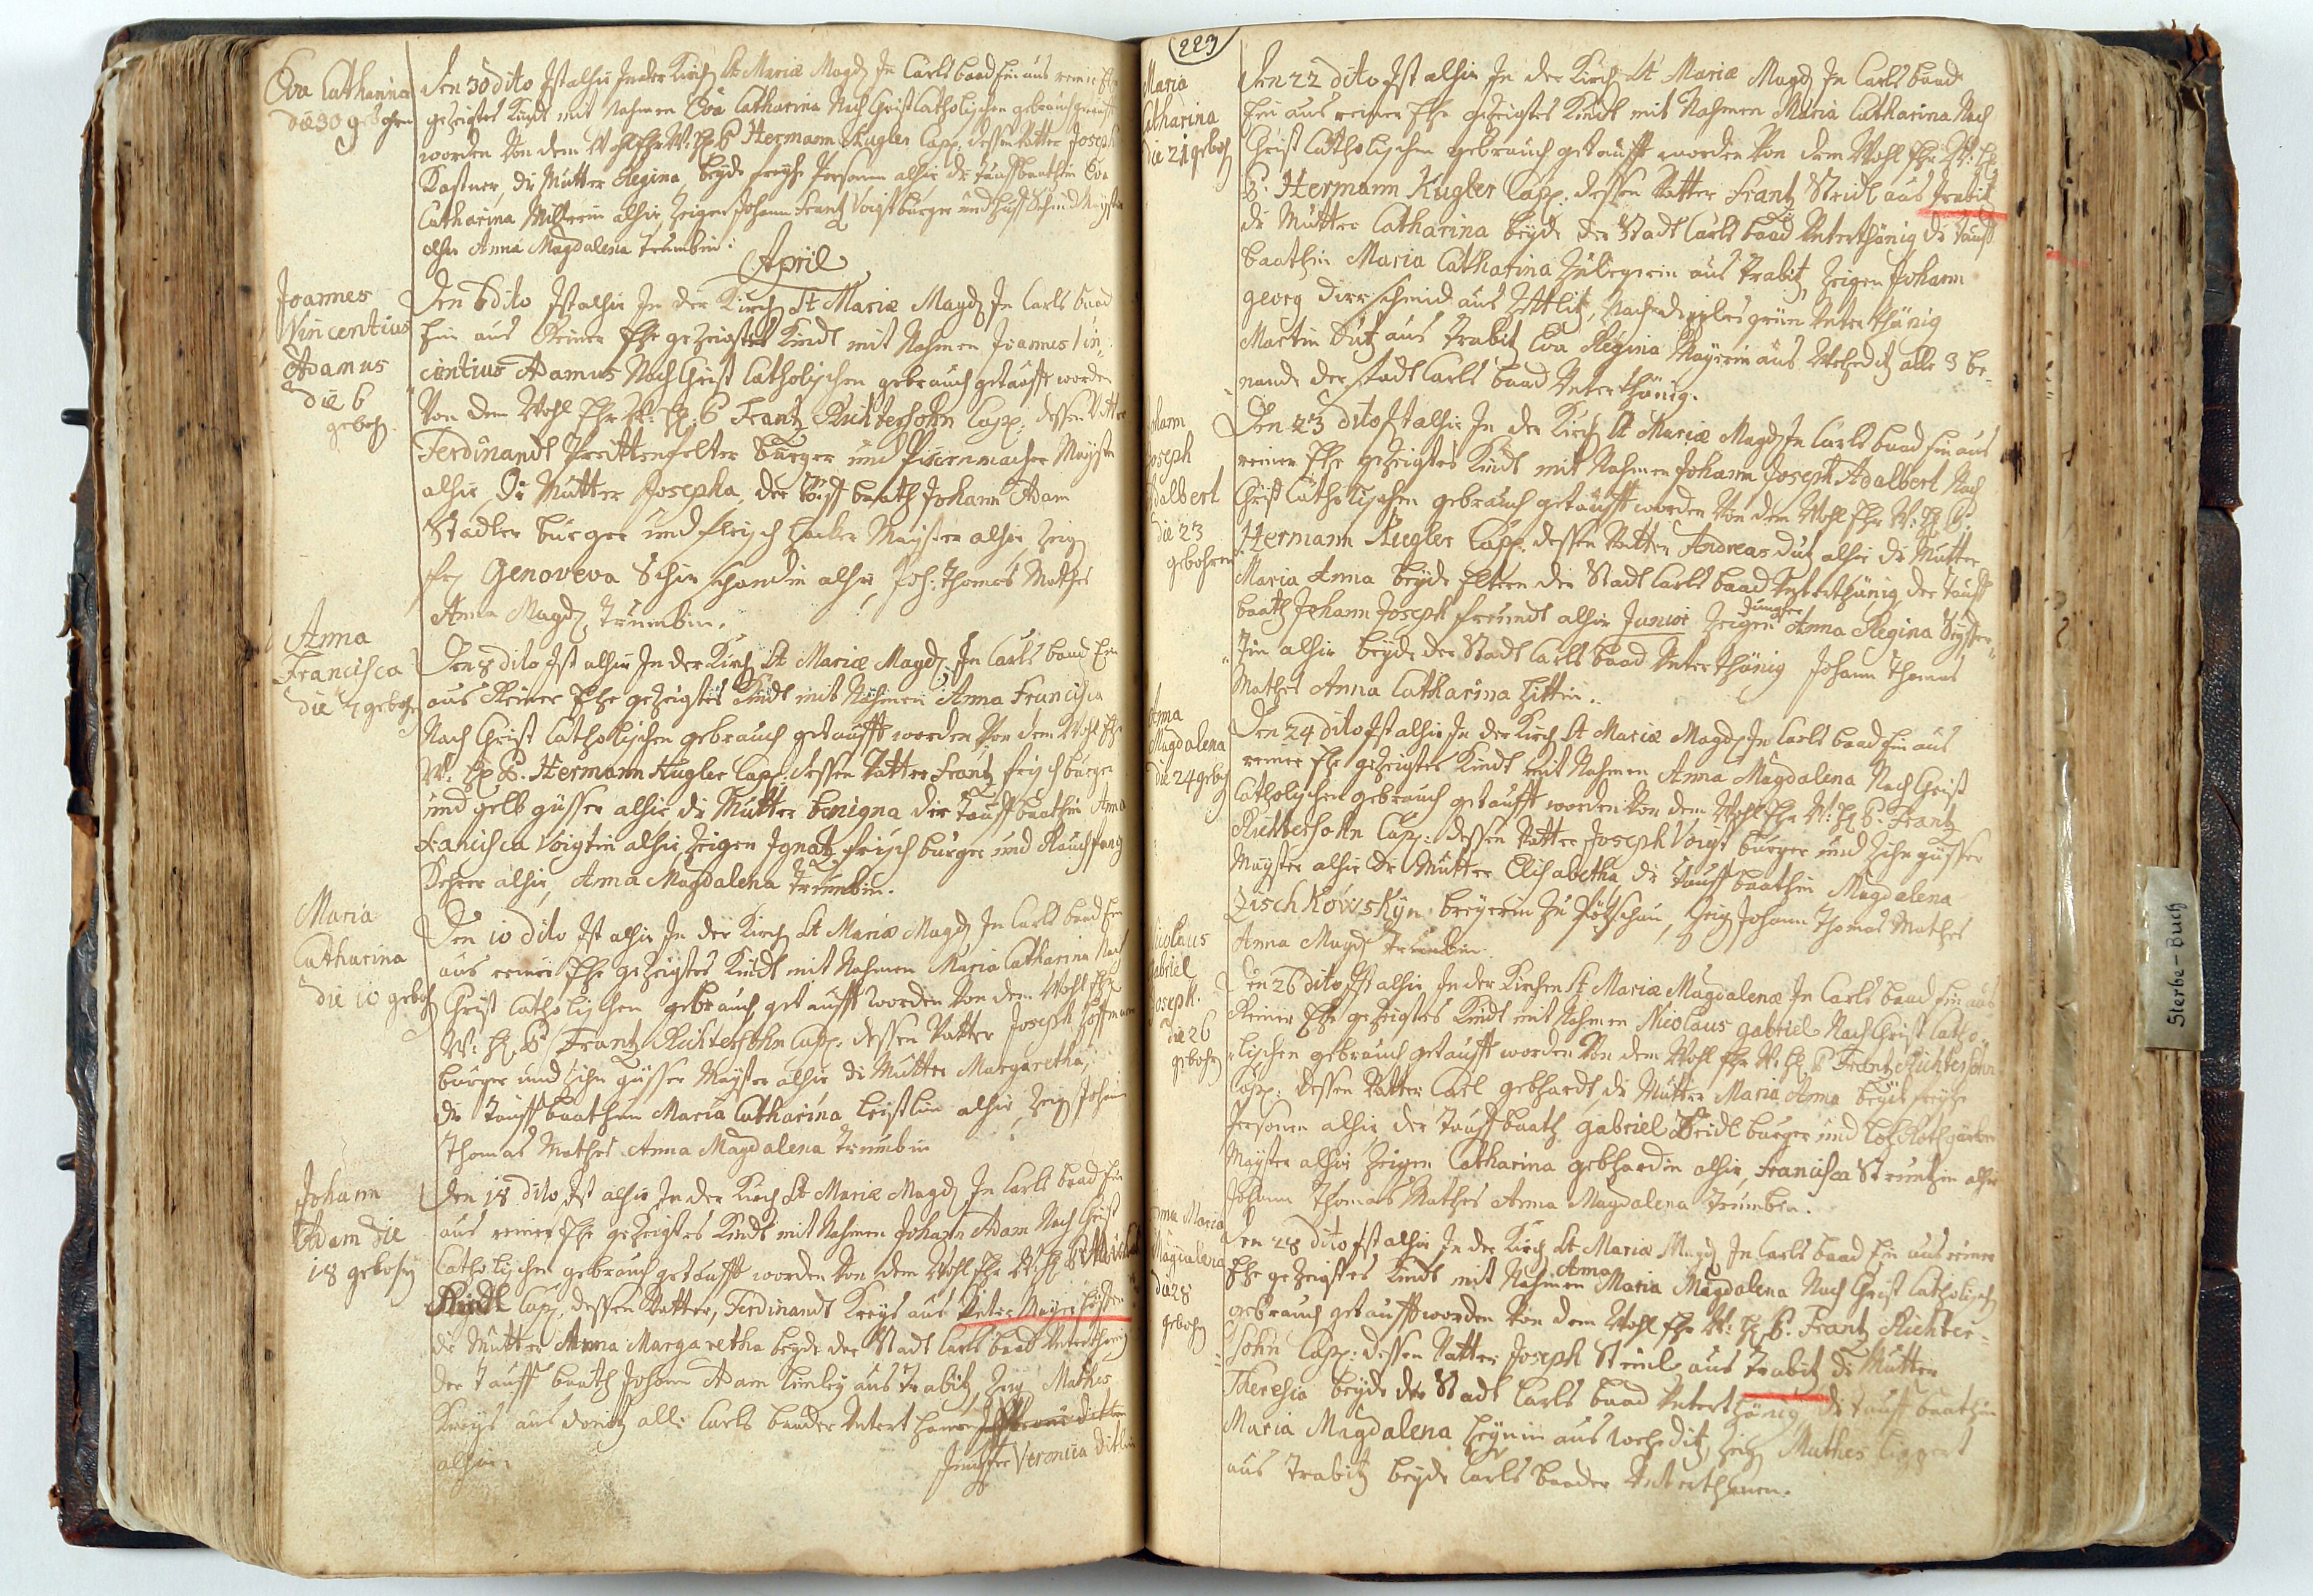 Eva Catharina
die 30 gebohren
Den 30 dito Ist alhir In der Kirch St Mariæ Magd In Carls baad Ein aus reiner Ehe
gezeigtes Kindt mit Nahmen Eva Catharina Nach Christ Catholischen gebrauch getaufft
worden Von dem Wohl Ehr W: H: P Hermann Kugler Capp: dessen Vatter Joseph
Kastner, die Mutter Regina, beyde freyhe Personen alhir die Tauffbaathin Eva
Catharina Millerin alhir, Zeigen Johann Frantz Voigt burger und Huf Schmid Mayster
alhir Anna Magdalena Trumbin:
April
Joannes
Vincentius
Adamus
die 6
geboh
Den 6 dito Ist alhir In der Kirch St Mariæ Magd In Carls baad
Ein aus Reiner Ehe gezeigtes Kindt mit Nahmen Joannes Vin
centius Adamus Nach Christ Catholischen gebrauch getaufft worden
Von dem Wohl Ehr W: H: P Frantz Richtersohn Capp: dessen Vatter
Ferdinandt burger und Mayster
alhir, Di Mutter Josepha, der Tauff baath Johann Adam
Stadler burger und fleisch hacker Mayster alhir Zeig
Genoveva alhir, Joh: Thomas Mathes
Anna Magd Trumbin.
Anna
Francisca
die 7 geboh
Den 8 dito Ist alhir In der Kirch St Mariæ Magd: In Carls baad Ein
aus Reiner Ehe gezeigtes Kindt mit Nahmen Anna Francisca
Nach Christ Catholischen gebrauch getaufft worden Von dem Wohl Ehr
W: H P. Hermann Kugler Capp: dessen Vatter Frantz frisch burger
und gelb güsser alhir di Mutter benigna die Tauffbaathin Anna
Francisca Voigtin alhir, Zeigen Ignatz frisch burger und Rauchfang
Kehrer alhir, Anna Magdalena Trumbin.
Maria
Catharina
die 10 geboh
Den 10 dito Ist alhir In der Kirch St Mariæ Magd In Carls baad Ein
aus reiner Ehe gezeigtes Kindt mit Nahmen Maria Catharina Nach
Christ Catholischen gebrauch getaufft worden Von dem Wohl Ehr
W: H. P Frantz Richtersohn Capp. dessen Vatter Joseph Hoffmann
burger und Zihn güsser Mayster alhir di Mutter Margaretha,
di Tauffbaathin Maria Catharina alhir, Zeig Johann
Thomas Mathes Anna Magdalena Trumbin
Johann
Adam die
18 gebohr
Den 18 dito Ist alhir In der Kirch St Mariæ Magd In Carls baad Ein
aus reiner Ehe gezeigtes Kindt mit Nahmen Johann Adam Nach Christ
Catholischen gebrauch getaufft worden Von dem Wohl Ehr W: H P
Capp. dessen Vatter, Ferdinandt Kreys aus Unter Mayerhöffen
di Mutter Anna Margaretha beyde der Stadt Carls baad Unterthänig
der Tauff baath Johann Adam aus Trabitz, Zeig Mathes
Kreys aus Donitz alle Carls baader Unterthanen
alhir. Jungfer Veronica
223
Maria
Catharina
die 21 geboh
Den 22 dito Ist alhir In der Kirch St Mariæ Magd In Carls baad
Ein aus reiner Ehe gezeigtes Kindt mit Nahmen Maria Catharina Nach
Christ Catholischen gebrauch getaufft worden Von dem Wohl Ehr W: H:
P. Hermann Kugler Capp: dessen Vatter Frantz Steidl aus Trabitz
di Mutter Catharina beyde der Stadt Carls baad Unterthänig di Tauff
baathin Maria Catharina aus Trabitz, Zeigen Johann
georg aus Zettlitz, Unterthänig
Martin Dutz aus Trabitz Eva Regina Mayerin aus Weheditz alle 3 be-
nande der Stadt Carls baad Unterthänig.
Johann
Joseph
Adalbert
die 23
gebohren
Den 23 dito Ist alhir In der Kirch St Mariæ Magd In Carls baad Ein aus
reiner Ehe gezeigtes Kindt mit Nahmen Johann Joseph Adalbert Nach
Christ Catholischen gebrauch getaufft worden Von dem Wohl Ehr W: H P.
Hermann Kugler Capp: dessen Vatter Andreas Dutz alhir di Mutter
Maria Anna beyde Eltern der Stadt Carls baad Unterthänig der Tauff
baath Johann Joseph freundt alhir Junior Zeigen Jungfer Anna Regina
in alhir beyde der Stadt Carls baad Unterthänig Johann Thomas
Mathes Anna Catharina Hittin.
Anna
Magdalena
die 24 geboh
Den 24 dito Ist alhir In der Kirch St Mariæ Magd In Carls baad Ein aus
reiner Ehe gezeigtes Kindt mit Nahmen Anna Magdalena Nach Christ
Catholischen gebrauch getaufft worden Von dem Wohl Ehr W: H P. Frantz
Richtersohn Capp: dessen Vatter Joseph Voigt burger und Zihn güsser
Mayster alhir di Mutter Elisabetha, di Tauff baathin Magdalena
Zischkowskÿn breyerin zu, Zeig Johann Thomas Mathes
Anna Magd Trumbin.
Nicolaus
gabriel
Joseph.
die 26
gebohr
Den 26 dito Ist alhir In der Kirchen St Mariæ Magdalenæ In Carls baad Ein aus
Reiner Ehe gezeigtes Kindt mit Nahmen Nicolaus gabriel Nach Christ Catho-
lischen gebrauch getaufft worden Von dem Wohl Ehr W: H P Frantz Richtersohn
Capp: dessen Vatter Carl gebhardt, di Mutter Maria Anna beyde freyhe
Personen alhir, der Tauff baath gabriel Seidl burger und Loh Rothgärber
Mayster alhir Zeigen Catharina gebhardin alhir, Francisca alhir
Johann Thomas Mathes Anna Magdalena Trumbin.
Anna Maria
Magdalena
die 28
gebohr
Den 28 dito Ist alhir In der Kirch St Mariæ Magd In Carls baad Ein aus reiner
Ehe gezeigtes Kindt mit Nahmen Anna Maria Magdalena Nach Christ Catholisch
gebrauch getaufft worden Von dem Wohl Ehr W: H P. Frantz Richter-
Sohn Capp: dessen Vatter Joseph aus Trabitz di Mutter
Theresia beyde der Stadt Carls baad Unterthänig, di Tauff baathin
Maria Magdalena aus Weheditz, Zeig Mathes Lippert
aus Trabitz beyde Carls baader Unterthanen.
Sterbe-Buch